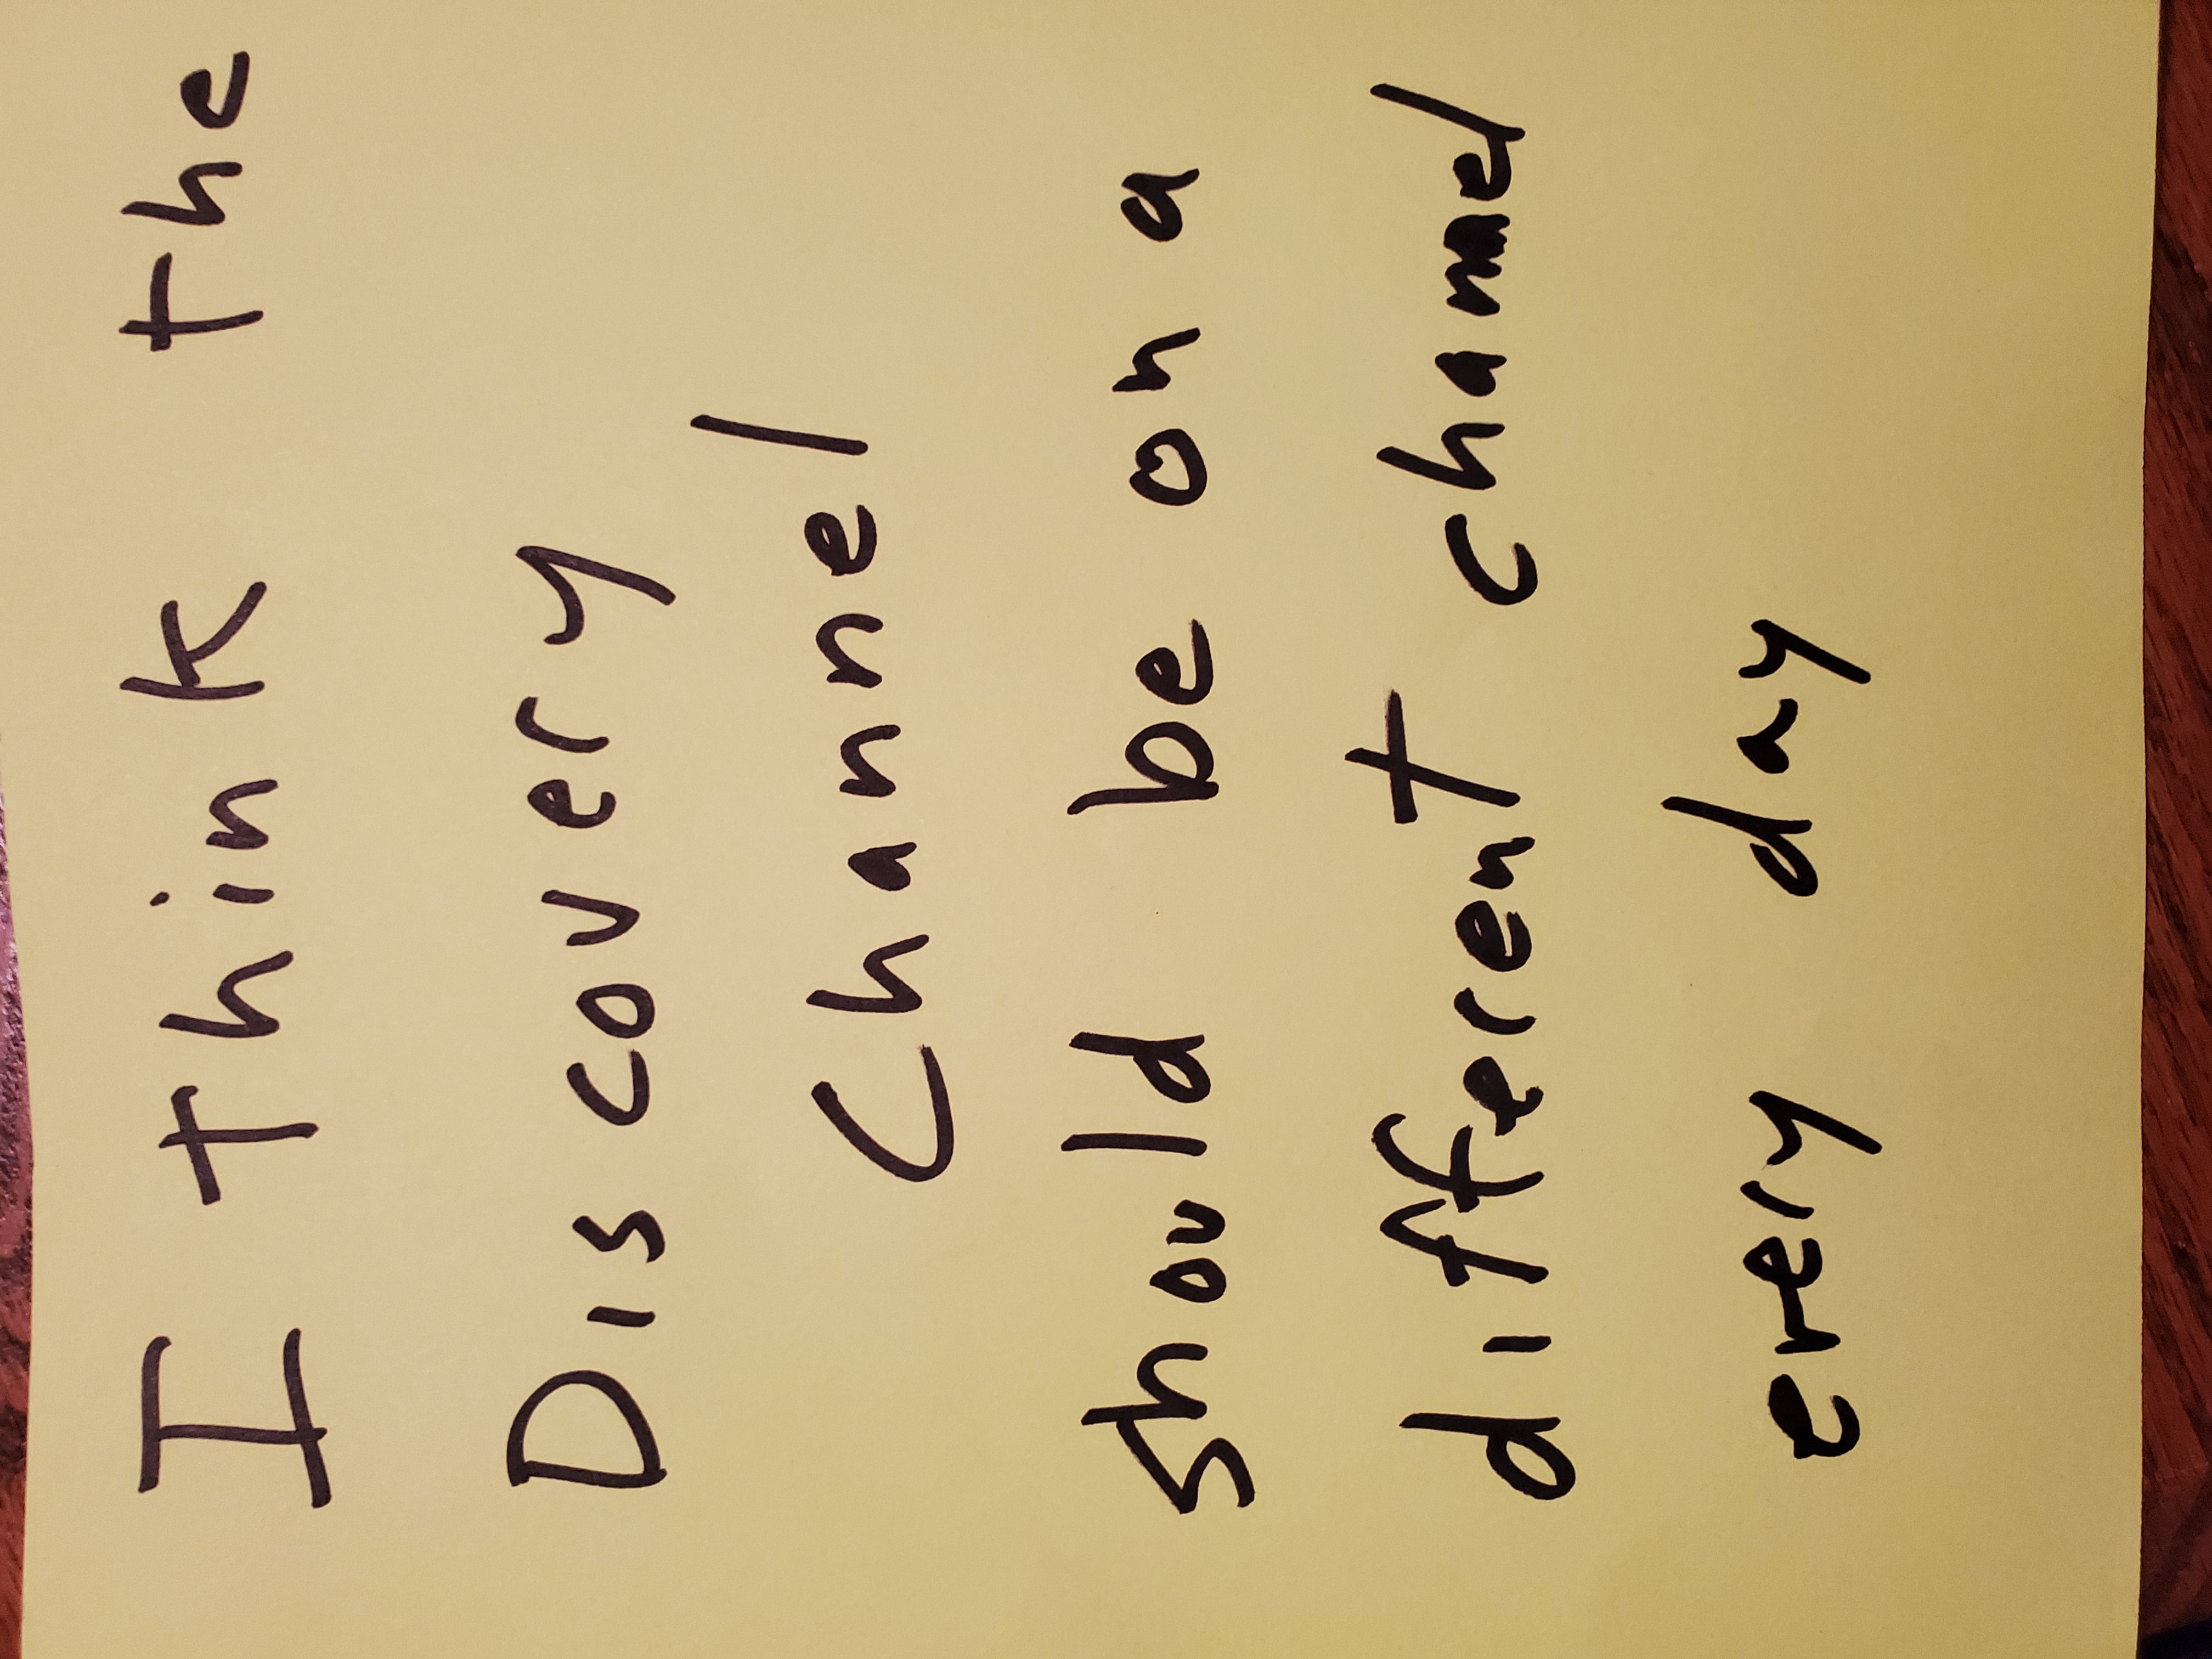 I think the
Discovery
Channel
should be on a
different channel
every day